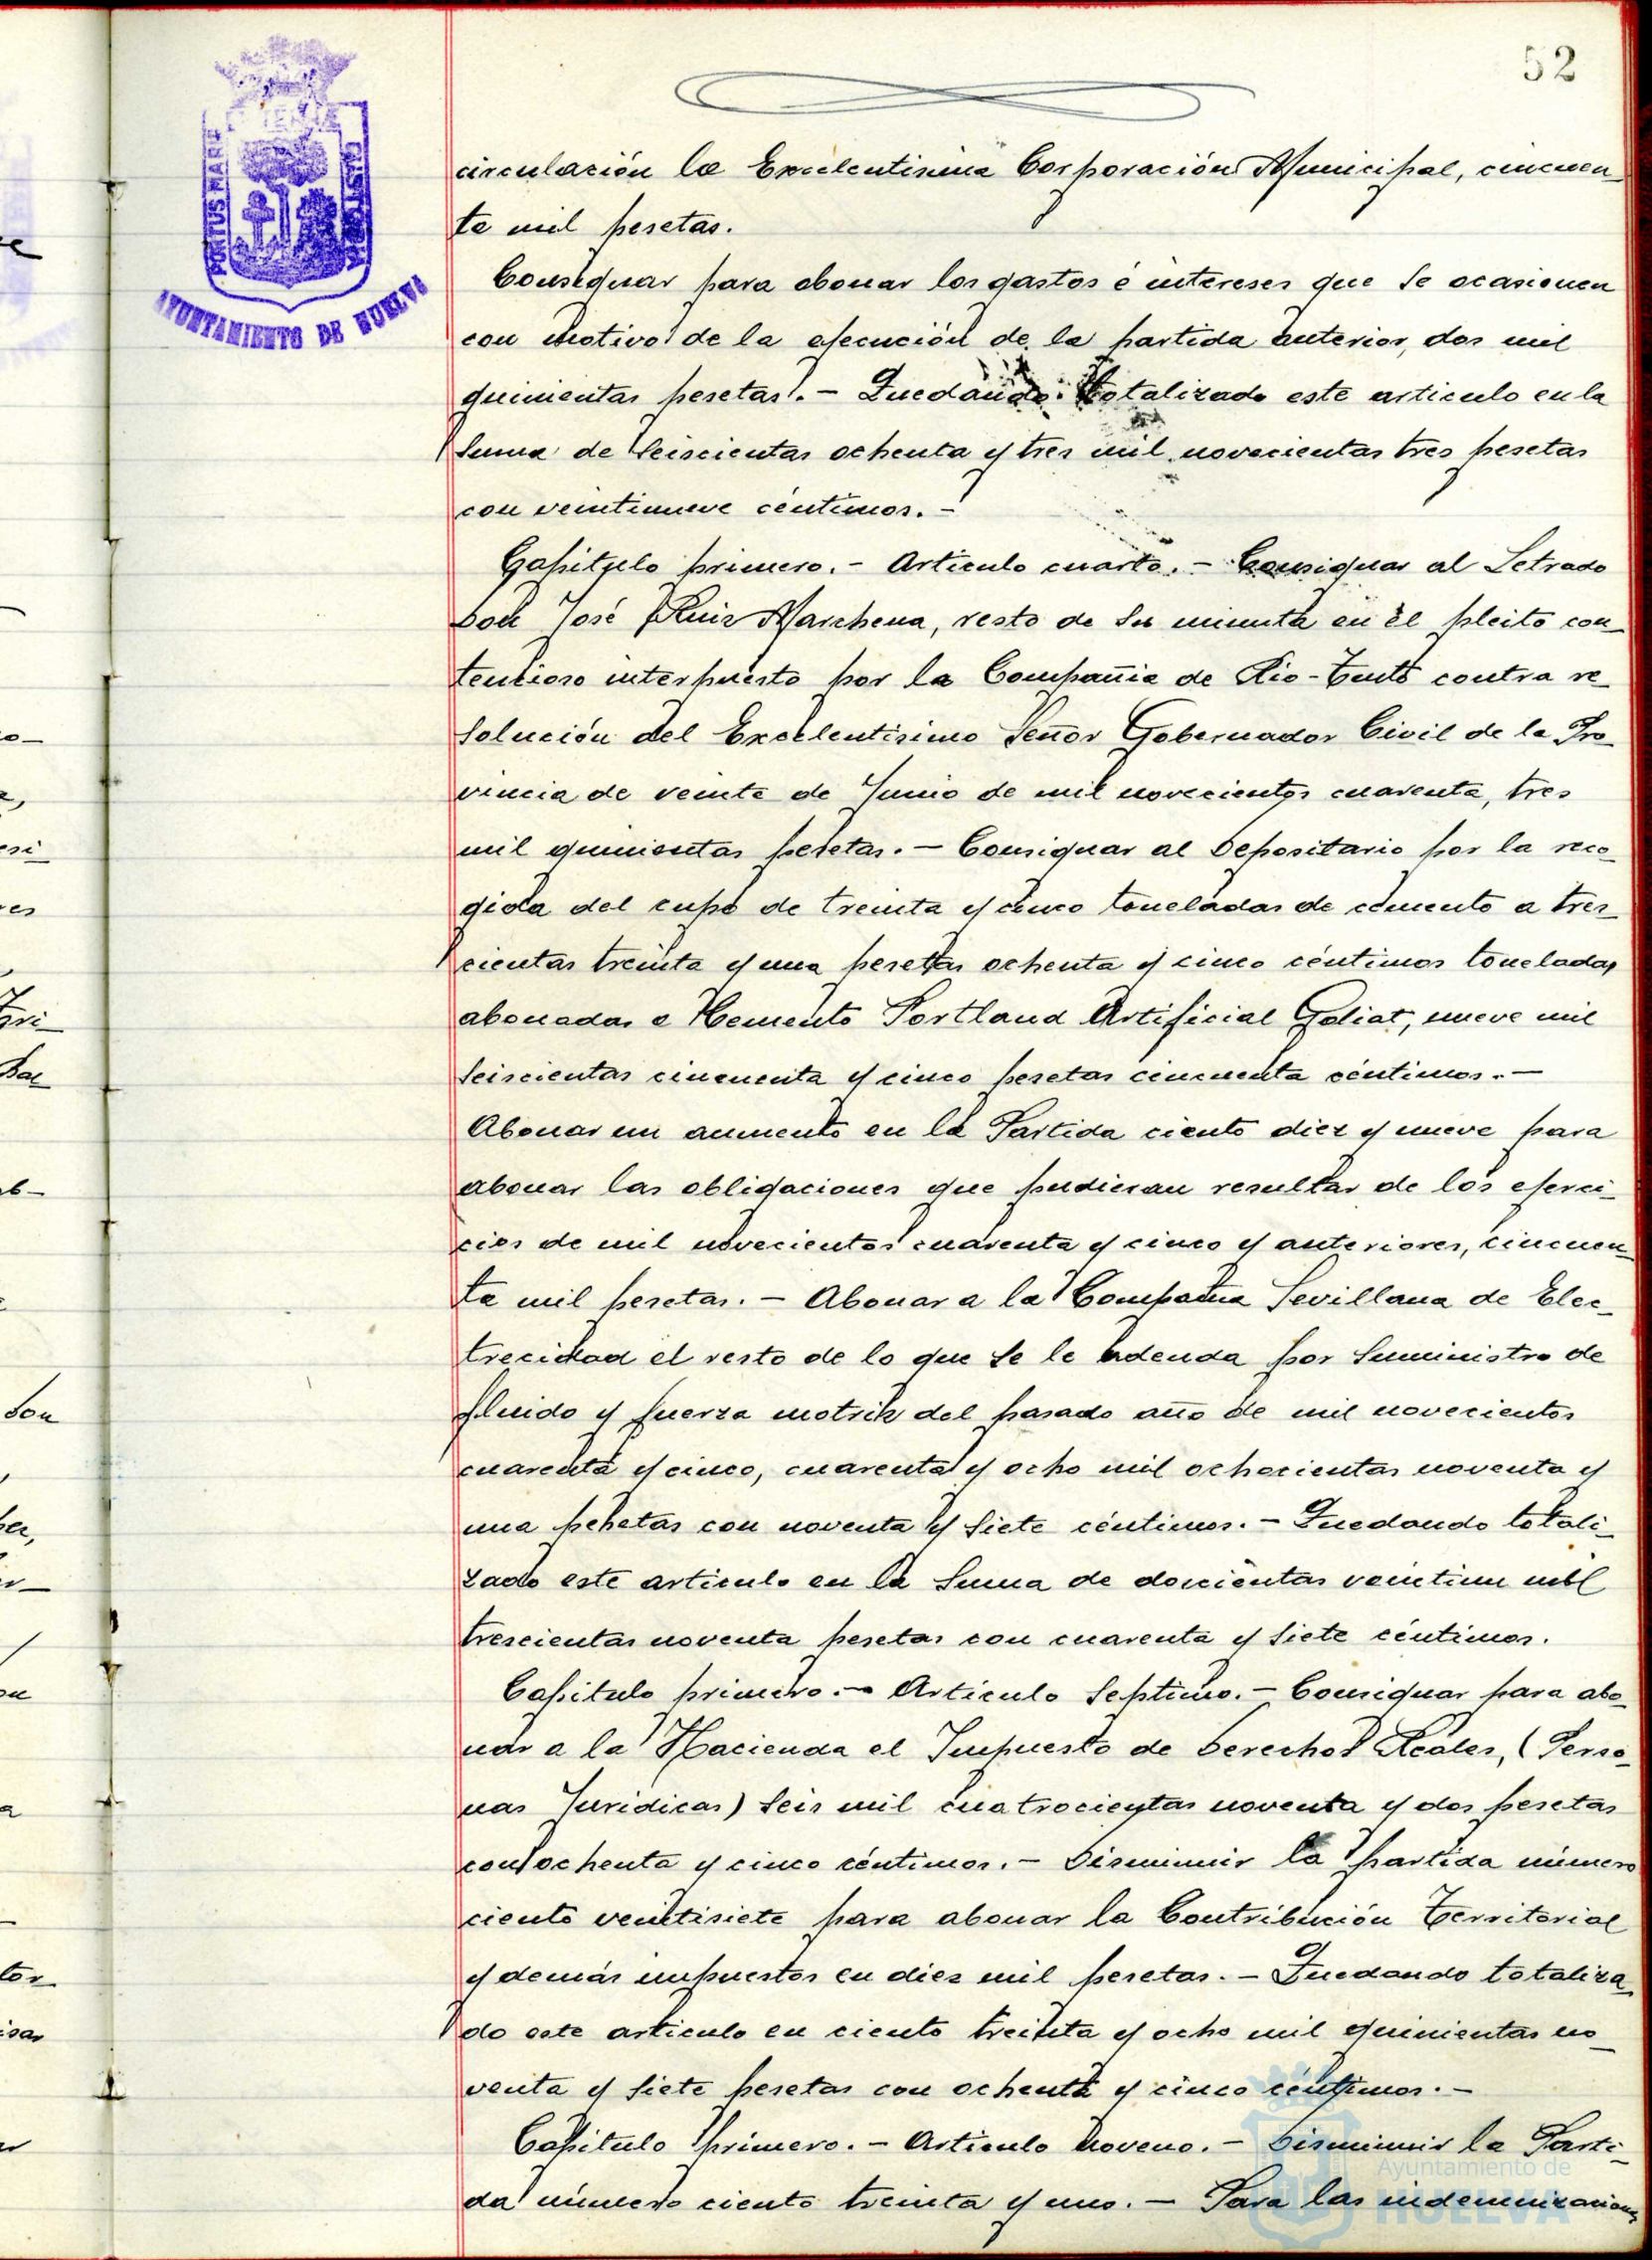 52
PORTUS MARIS
CUSTODIA
AYUNTAMIENTO DE HUELVA
circulación la Excelentisima Corporación Municipal, cincuen_
ta mil pesetas.
Consignar para abonar los gastos é intereses que se ocasionen
con motivo de la ejecución de la partida anterior, dos mil
quinientas pesetas. - Quedando totalizado este articulo en la
suma de seiscientas ochenta y tres mil novecientas tres pesetas
con veintinueve céntimos. -
Capitulo primero. - Articulo cuarto. - Consignar al Letrado
Don José Ruiz Marchena, resto de su minuta en el pleito con_
tencioso interpuesto por la Compañia de Rio-Tinto contra re_
solución del Excelentisimo Señor Gobernador Civil de la Pro_
vincia de veinte de Junio de mil novecientos cuarenta, tres
mil quinientas pesetas. - Consignar al Depositario por la reco_
gida del cupo de treinta y cinco toneladas de cemento a tres_
cientas treinta y una pesetas ochenta y cinco céntimos toneladas
abonadas a Cemento Portland Artificial Goliat, nueve mil
seiscientas cincuenta y cinco pesetas cincuenta céntimos. -
Abonar un aumento en la Partida ciento diez y nueve para
abonar las obligaciones que pudieran resultar de los ejerci_
cios de mil novecientos cuarenta y cinco y anteriores, cincuen_
ta mil pesetas. - Abonar a la Compañia Sevillana de Elec_
trecidad el resto de lo que se le adeuda por suministro de
fluido y fuerza motriz del pasado año de mil novecientos
cuarenta y cinco, cuarenta y ocho mil ochocientas noventa y
una pesetas con noventa y siete céntimos. - Quedando totali_
zado este articulo en la suma de doscientas veintiun mil
trescientas noventa pesetas con cuarenta y siete céntimos.
Capitulo primero. - Articulo septimo. - Consignar para abo_
nar a la Hacienda el Impuesto de Derechos Reales, (Perso_
nas Juridicas) seis mil cuatrocientas noventa y dos pesetas
con ochenta y cinco céntimos. - Disminuir la partida número
ciento veintisiete para abonar la Contribución Territorial
y demás impuestos en diez mil pesetas. - Quedando totaliza_
do este articulo en ciento treinta y ocho mil quinientas no_
venta y siete pesetas con ochenta y cinco céntimos. -
Capitulo primero. - Articulo noveno. - Disminuir la Parti_
da número ciento treinta y uno. - Para las indemnizaciones
Ayuntamiento de
HUELVA